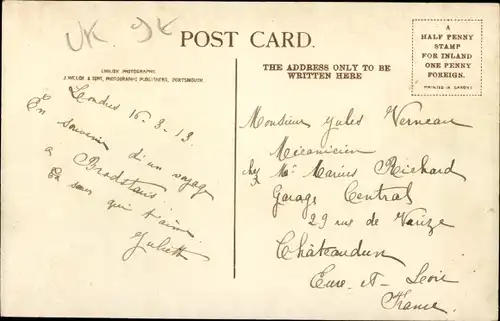 UK
POST CARD.
A
HALF PENNY
STAMP
FOR INLAND
ONE PENNY
FOREIGN.
PRINTED IN SAXONY
ENGLISH PHOTOGRAPHS.
PHOTOGRAPHIC PUBLISHERS, PORTSMOUTH.
THE ADDRESS ONLY TO BE
WRITTEN HERE
Londres 16-8-13.
En souvenir
d'un voyage
a Bradstairs
Ta sœur qui t'aime
Juliette
Monsieur Jules Verneau
Mécanicien
chez Mr Marius Richard
Garage Central
29 rue de Varize
Châteaudun
Eure-et-Loir
France.